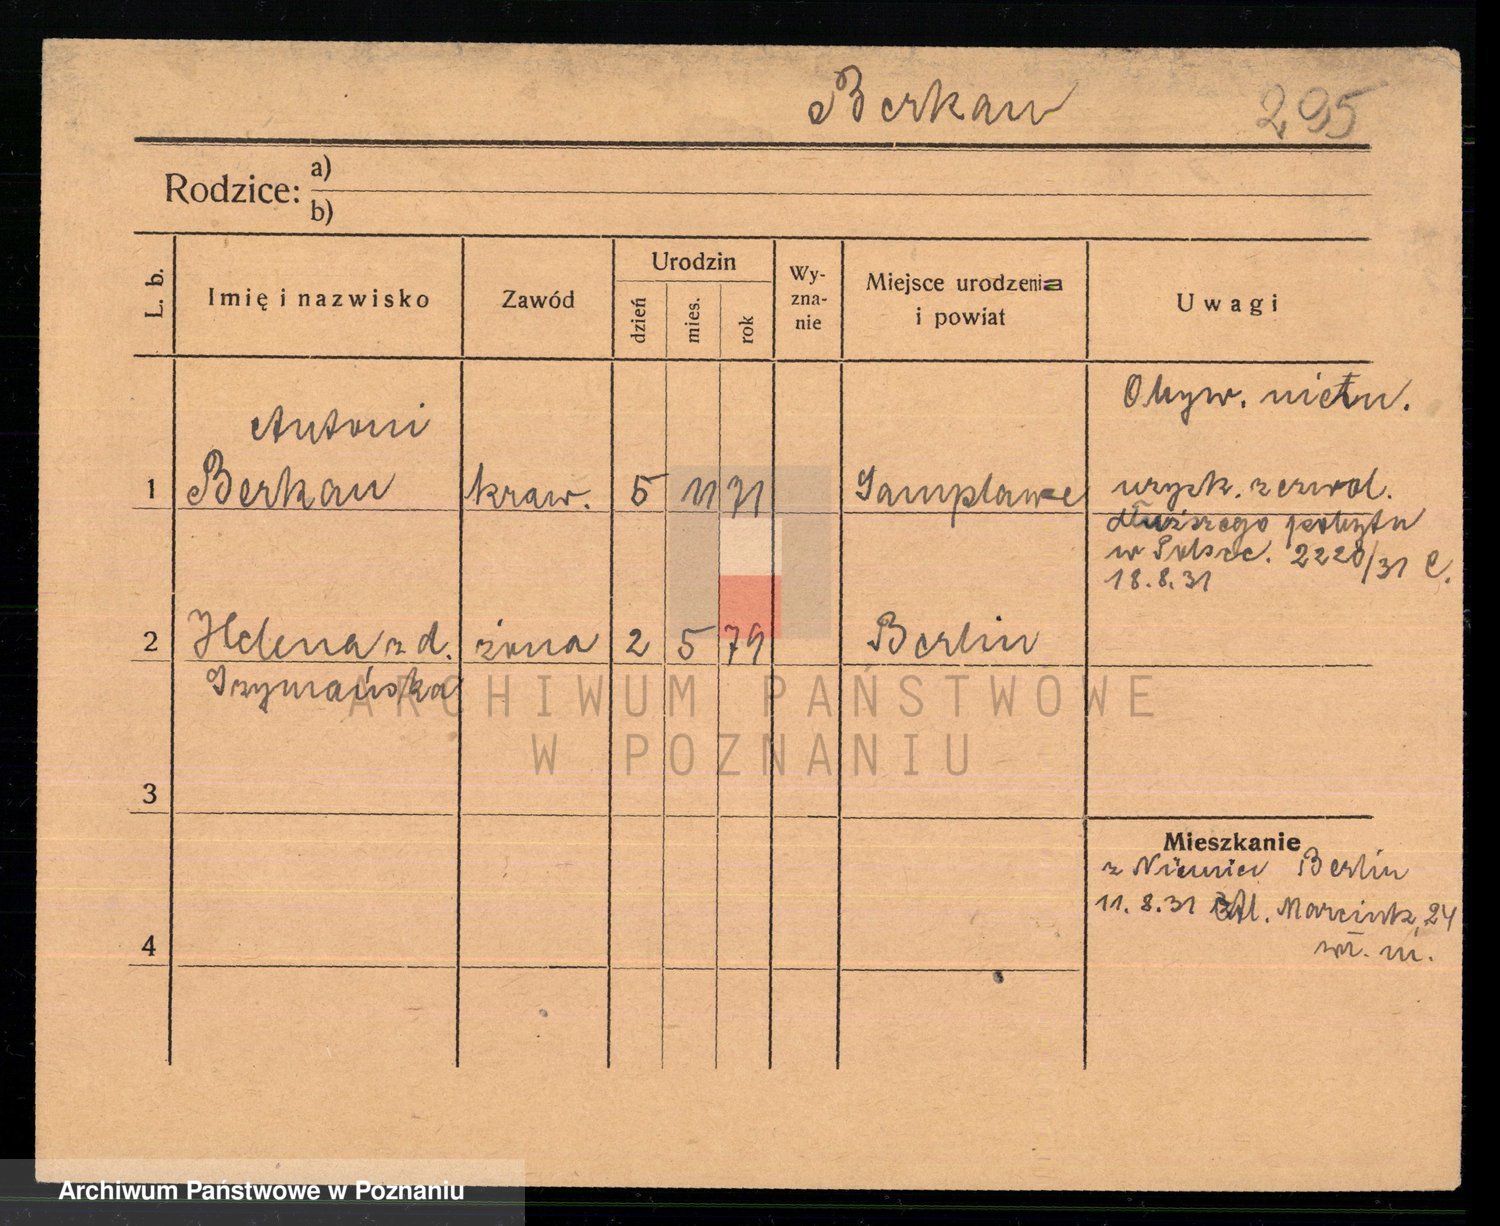 Berkan
295
Rodzice: a)
b)
L. b.
Imię i nazwisko
Zawód
Urodzin
dzień
mies.
rok
Wy-
zna-
nie
Miejsce urodzenia
i powiat
Uwagi
Obyw. niem.
Antoni
1 Berkan kraw. 5 11 71 Samplawie uzysk. zezwol.
dłuższego pobytu
w Polsce. 2220/31 C.
18.8.31
2 Helena z d. żona 2 5 79 Berlin
Szymańska
ARCHIWUM PAŃSTWOWE
W POZNANIU
3
Mieszkanie
z Niemiec Berlin
11. 8. 31 Al. Marcink. 24
4
m.
Archiwum Państwowe w Poznaniu